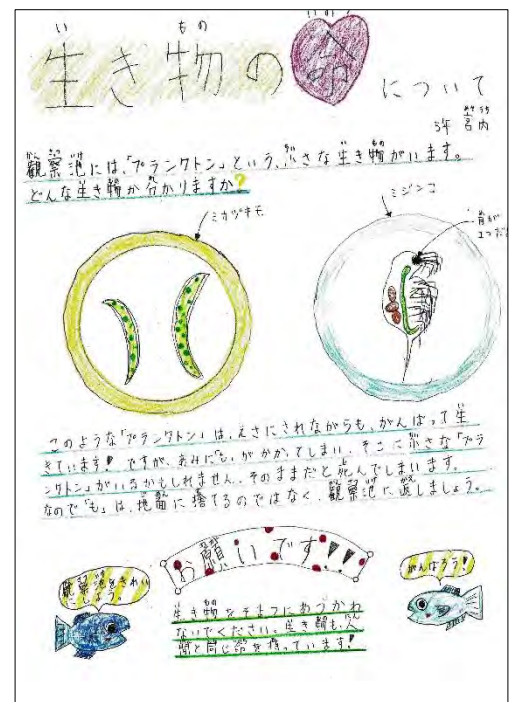 生き物の命について
3年 宮内
観察池には、「プランクトン」という、小さな生き物がいます。
どんな生き物か分かりますか?
ミカヅキモ
ミジンコ
このような「プランクトン」は、えさにされながらも、がんばって生
きています!ですが、あみに「も」がかかってしまい、そこに小さな「プラ
ンクトン」がいるかもしれません。そのままだと死んでしまいます。
なので「も」は、地面に捨てるのではなく、観察池に返しましょう。
お願いです!!
観察池をきれい
にしよう。
がんばろう!
生き物をそまつにあつかわ
ないでください。生き物も、人
間と同じ命を持っています!